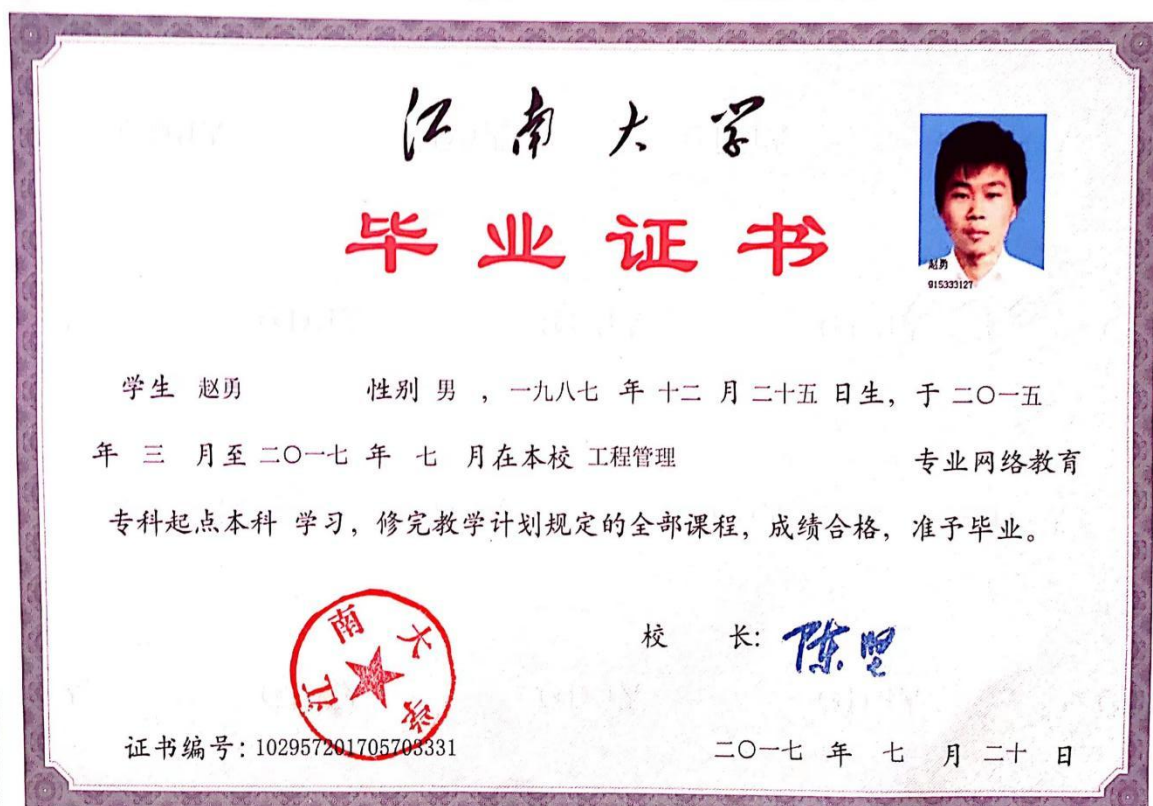 江南大学
毕业证书
赵勇
915333127
学生 赵勇 性别 男 ，一九八七 年 十二 月 二十五 日生，于 二〇一五
年 三 月至 二〇一七 年 七 月在本校 工程管理 专业网络教育
专科起点本科 学习，修完教学计划规定的全部课程，成绩合格，准予毕业。
江南大学
校 长：陈坚
证书编号：102957201705703331
二〇一七 年 七 月 二十 日